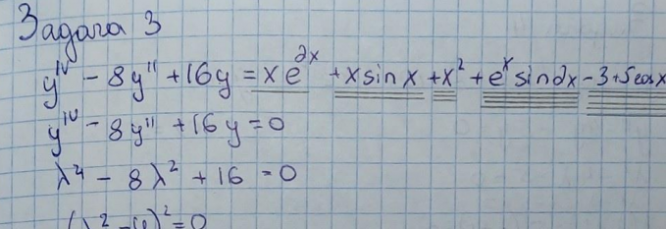 Задача 3
y^IV - 8y'' + 16y = xe^2x + x sin x + x² + e^x sin 2x - 3 + 5cos x
y^IV - 8y'' + 16y = 0
λ⁴ - 8λ² + 16 = 0
(λ² - 4)² = 0